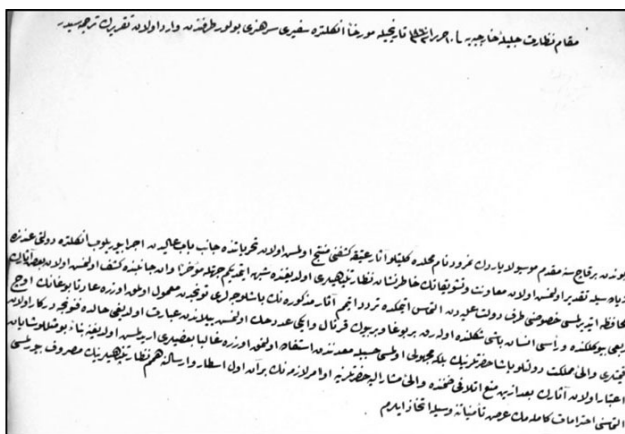 مقام نظارت جليلهٔ خارجيه يه ١٠ حزيران تاريخيله مورخاً انكلتره سفيرى سر هنرى بولور طرفندن وارد اولان تقريرك ترجمه سيدر
بوندن برقاج سنه مقدم موسيو لايارد نمرود نام محلده كليتلو آثار عتيقه كشفنى منتج اولمش اولان تحرياتنده جانب بابعاليدن اجرا بيوريلوب انكلتره دولتى عندنده
سيله تقدير اولنمش اولان معاونت و تشويقاتك خاطرنشان نظارتپناهيلرى اولديغنده شبهه ايتمديكم جهتله مؤخراً وان جانبنده كشف اولنمش اولان بعض آثارك
محافظه ايتديرلمسى خصوصنى طرف دولت عليه دن التماس ايتمكده تردد ايتمم آثار مذكوره نك باشلوجه لرى توجدن معمول اولمق اوزره عادتا بوغانك اوچ
ربعى بيوكلكنده و رأسى انسان باشى شكلنده اوله رق بر بوغا و بر بيوك قرتال و ايكى عدد حك اولنمش ييلاندن عبارت اولديغى حالده
والى مملكت دولتلو پاشا حضرتلرينك بلكه مجبولى اولمسى حسبيله معدنندن استفاده اولنمق اوزره غالبا بعضيلرى اريدلمش اولديغندن بناءً بو مثللو شايان
اعتبار اولان آثارك بعد ازين منع اتلافى ضمننده والى مشار اليه حضرتلرينه اوامر لازمه نك بر آن اول اسطار و ارسالنه همم نظارتپناهيلرينك مصروف بيورلمسى
التماسنى احترامات كامله مك عرض تأميناتنه وسيله اتخاذ ايلرم